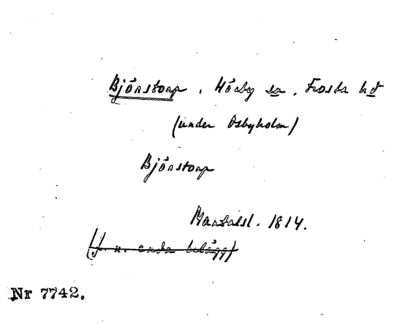 Bjärstorp, Hörby sn, Frosta hd
(under Osbyholm)
Bjärstorp
Mantalsl. 1814.
(f. n. enda belägg)
Nr 7742.